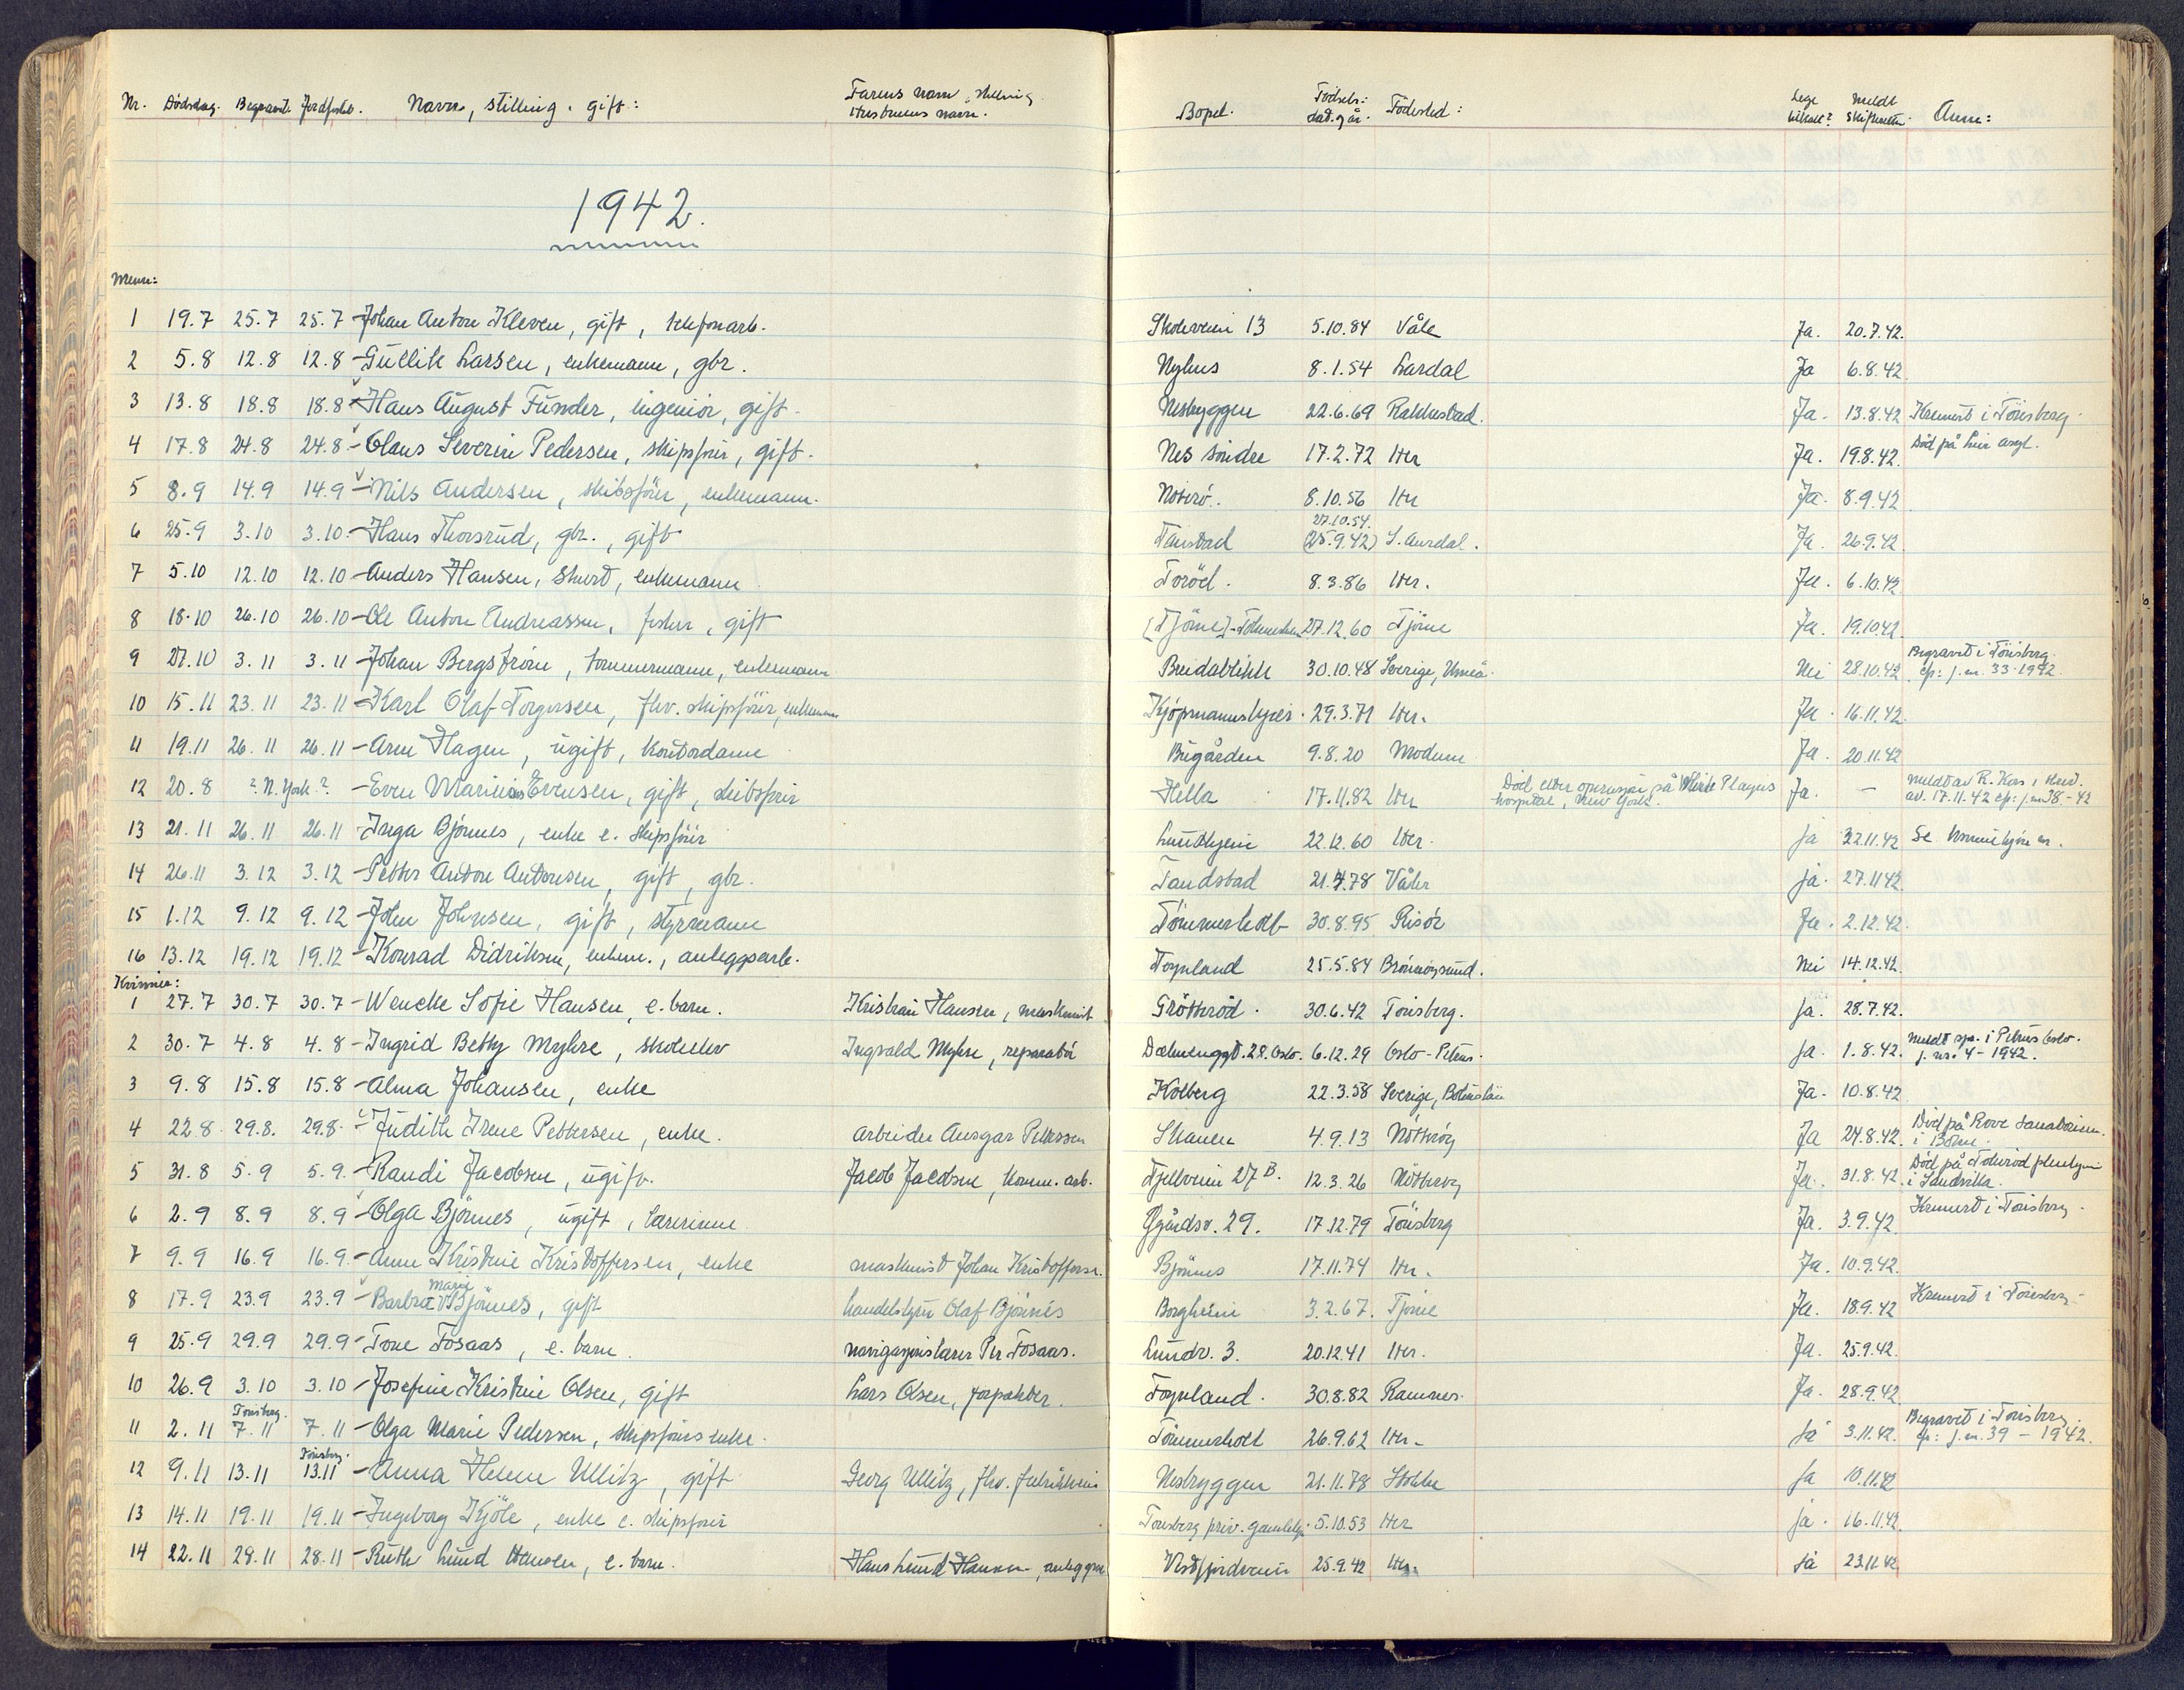 Nr. Dödsdag. Begravet. Jordfestet. Navn, stilling, gift: Farens navn, stilling Bopel. Födsels- Födested: Lege Meldt Anm:
Ektefellens navn. dad. og år. tilkalt? Skifteretten
1942.
Menn:
1 19.7 25.7 25.7 Johan Anton Kleven, gift, telefonarb. Skoleveien 13 5.10.84 Våle Ja. 20.7.42.
2 5.8 12.8 12.8 Gullik Larsen, enkemann, gbr. Nyhus 8.1.54 Lardal Ja 6.8.42.
3 13.8 18.8 18.8 Hans August Funder, ingeniör, gift. Nesbryggen 22.6.69 Rakkestad. Ja. 13.8.42 Kremert i Tönsberg.
4 17.8 24.8 24.8 Olaus Severin Pedersen, skipsförer, gift. Nes söndre 17.2.72 Her Ja. 19.8.42. Död på Lier asyl.
5 8.9 14.9 14.9 Nils Andersen, skibsförer, enkemann. 8.10.56 Her Ja. 8.9.42
6 25.9 3.10 3.10 Hans Thorsrud, gbr., gift 27.10.54. (25.9.42) S. Aurdal. Ja. 26.9.42.
7 5.10 12.10 12.10 Anders Hansen, enkemann Toröd. 8.3.86 Her. Ja. 6.10.42
8 18.10 26.10 26.10 Ole Anton Andreassen, fisker, gift [Tjöme] 27.12.60 Tjöme Ja. 19.10.42
9 27.10 3.11 3.11 Johan Bergström, tömmermann, enkemann Breidablikk 30.10.48 Sverige, Umeå. Nei 28.10.42 Begravet i Tönsberg. cfr: j.nr. 33-1942.
10 15.11 23.11 23.11 Karl Olaf Torgersen, fhv. skipsförer, enkemann Kjöpmannskjær. 29.3.71 Her. Ja. 16.11.42.
11 19.11 26.11 26.11 Arne Hagen, ugift, kontordame Bugården 9.8.20 Modum Ja. 20.11.42
12 20.8 ? N. York ? Even Marinius Evensen, gift, skibsförer Hella 17.11.82 Her Död etter operasjon på White Plagus hospital, New York. Ja. – meldt av R. Kors i skred. av. 17.11.42 cfr: j.nr 38-42
13 21.11 26.11 26.11 Inga Björnnes, enke e. skipsförer 22.12.60 Her. Ja 22.11.42 Se
14 26.11 3.12 3.12 Petter Anton Antonsen, gift, gbr. Tandstad 21.4.78 Våler ja. 27.11.42.
15 1.12 9.12 9.12 John Johnsen, gift, styrmann Tömmerholt 30.8.95 Risör Ja. 2.12.42.
16 13.12 19.12 19.12 Konrad Didriksen, enkem., anleggsarb. Föynland 25.5.84 Brönnöysund. Nei 14.12.42.
Kvinner:
1 27.7 30.7 30.7 Wencke Sofie Hansen, e. barn. Kristian Hansen, maskinist Gröteröd. 30.6.42 Tönsberg. Ja. 28.7.42.
2 30.7 4.8 4.8 Ingrid Betty Myhre, skoleelev Ingvald Myhre, reparatör Dælenenggt. 28. Oslo. 6.12.29 Oslo-Petrus. ja. 1.8.42. Meldt spr. i Petrus Oslo. j. nr. 4-1942.
3 9.8 15.8 15.8 Alma Johansen, enke Kolberg 22.3.58 Sverige, Ja. 10.8.42
4 22.8 29.8. 29.8. Judith Irene Pettersen, enke. Arbeider Ansgar Pettersen Skauen 4.9.13 Nötteröy Ja 24.8.42. Död på Rove Sanatorium. i Botne.
5 31.8 5.9 5.9. Randi Jacobsen, ugift. Jacob Jacobsen, komm. arb. Fjellveien 27 B. 12.3.26 Nötteröy Ja. 31.8.42 Död på pleiehjem i Sandvika.
6 2.9 8.9 8.9 Olga Björnnes, ugift, lærerinne 29. 17.12.79 Tönsberg Ja. 3.9.42. Kremert i Tönsberg.
7 9.9 16.9 16.9. Anne Kristine Kristoffersen, enke maskinist Johan Kristoffersen. Björnnes 17.11.74 Her. Ja. 10.9.42.
8 17.9 23.9 23.9 Barbra Marie Björnnes, gift handelsbestyrer Olaf Björnnes Borgheim 3.2.67. Tjöme Ja. 18.9.42 Kremert i Tönsberg.
9 25.9 29.9 29.9 Tone Fosaas, e. barn. navigasjonslærer Per Fosaas. Lundv. 3. 20.12.41 Her. Ja. 25.9.42.
10 26.9 3.10 3.10 Josefine Kristine Olsen, gift Lars Olsen, forpakter. Föynland. 30.8.82 Ramnes. Ja. 28.9.42
11 2.11 Tönsberg. 7.11 7.11 Olga Marie Pedersen, skipsförers enke. Tömmerholt 26.9.62 Her. Ja 3.11.42. Begravet i Tönsberg. cfr: j.nr. 39 – 1942.
12 9.11 13.11 Tönsberg. 13.11 Anna Helene Ullitz, gift Georg Ullitz, fhv. Nesbryggen 21.11.78 Stokke Ja 10.11.42
13 14.11 19.11 19.11 Ingeborg Kjöle, enke e. skipsförer Tönsberg priv. gamlehj. 5.10.53 Her ja. 16.11.42.
14 22.11 28.11 28.11 Ruth Lund Hansen, e. barn. Hans Lund Hansen, Vestfjordveien 25.9.42 Her. Ja 23.11.42